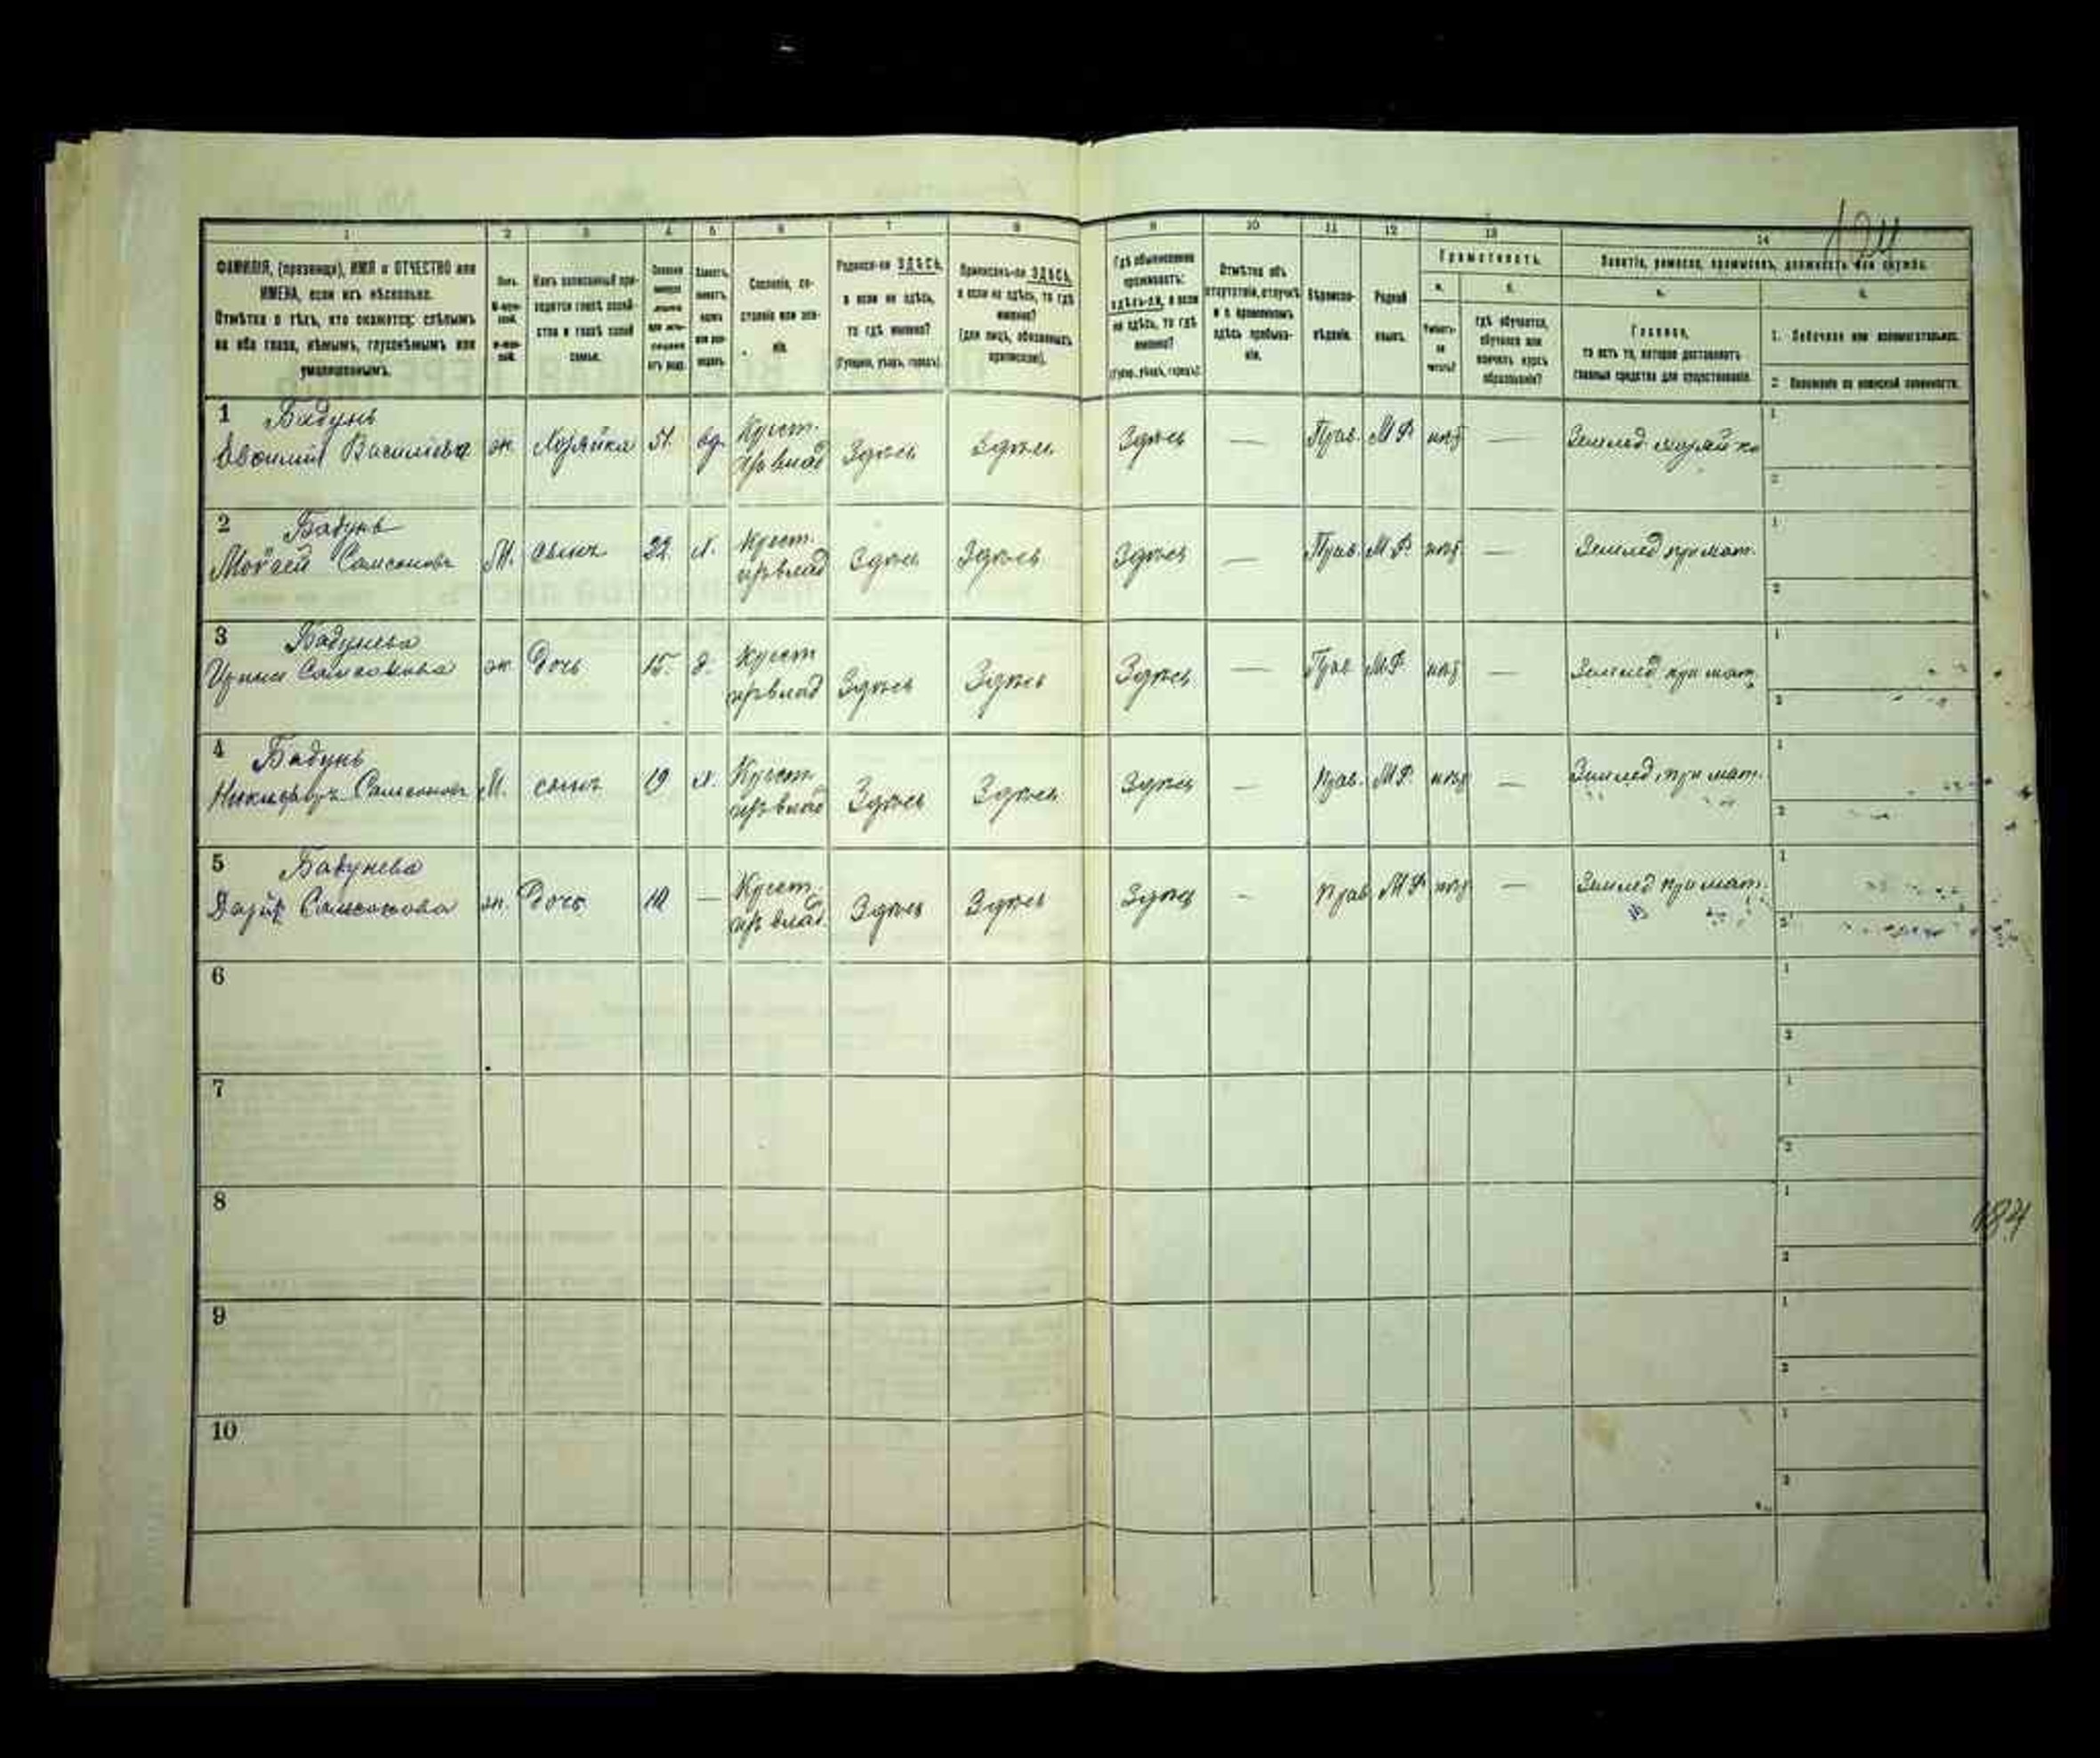 1 2 3 4 5 6 7 8 9 10 11 12 13 14
ФАМИЛІЯ, (прозвище), ИМЯ и ОТЧЕСТВО или
ИМЕНА, если ихъ нѣсколько.
Отмѣтка о тѣхъ, кто окажется: слѣпымъ
на оба глаза, нѣмымъ, глухонѣмымъ или
умалишеннымъ.
Полъ.
Какъ записанный при-
ходится главѣ хозяй-
ства и главѣ своей
семьи.
Сословіе, со-
стояніе или зва-
ніе.
Родился-ли ЗДѢСЬ,
а если не здѣсь,
то гдѣ именно?
(Губернія, уѣздъ, городъ).
Приписанъ-ли ЗДѢСЬ,
а если не здѣсь, то гдѣ
именно?
(для лицъ, обязанныхъ
припискою).
Гдѣ обыкновенно
проживаетъ:
здѣсь-ли, а если
не здѣсь, то гдѣ
именно?
(Губер., уѣздъ, городъ)
Отмѣтка объ
отсутствіи, отлучкѣ
и о временномъ
здѣсь пребыва-
ніи.
Вѣроиспо-
вѣданіе.
Родной
языкъ.
Грамотность.
а. б.
Умѣетъ-
ли
читать?
гдѣ обучается,
обучался или
кончилъ курсъ
образованія?
Занятіе, ремесло, промыселъ, должность или служба.
а. б.
Главное,
то есть то, которое доставляетъ
главныя средства для существованія.
1. Побочное или вспомогательное.
2. Положеніе по воинской повинности.
1 Бадунь
Васильева ж. Хозяйка 51. вд. Крест. Здѣсь Здѣсь Здѣсь — Прав. М Р нѣт — Землед хозяйка
1
2
2 Бадунь
Моѵсей Самсоновъ М. сынъ 22 х. Крест. Здѣсь Здѣсь Здѣсь — Прав. М Р нѣт — Землед при мат.
1
2
3 Бадунева
Самсонова ж Дочь 15. д. крест Здѣсь Здѣсь Здѣсь — Прав М Р нѣт — Землед при мат.
1
2
4 Бадунь
Никифоръ Самсоновъ М. сынъ 19 х. Крест Здѣсь Здѣсь Здѣсь — Прав. М Р. нѣт — Землед. при мат.
1
2
5 Бадунева
Дарія Самсонова ж. Дочь — Крест. Здѣсь Здѣсь Здѣсь - Прав М Р нѣт — Землед при мат.
1
2
6
1
2
7
1
2
8
1
2
9
1
2
10
1
2